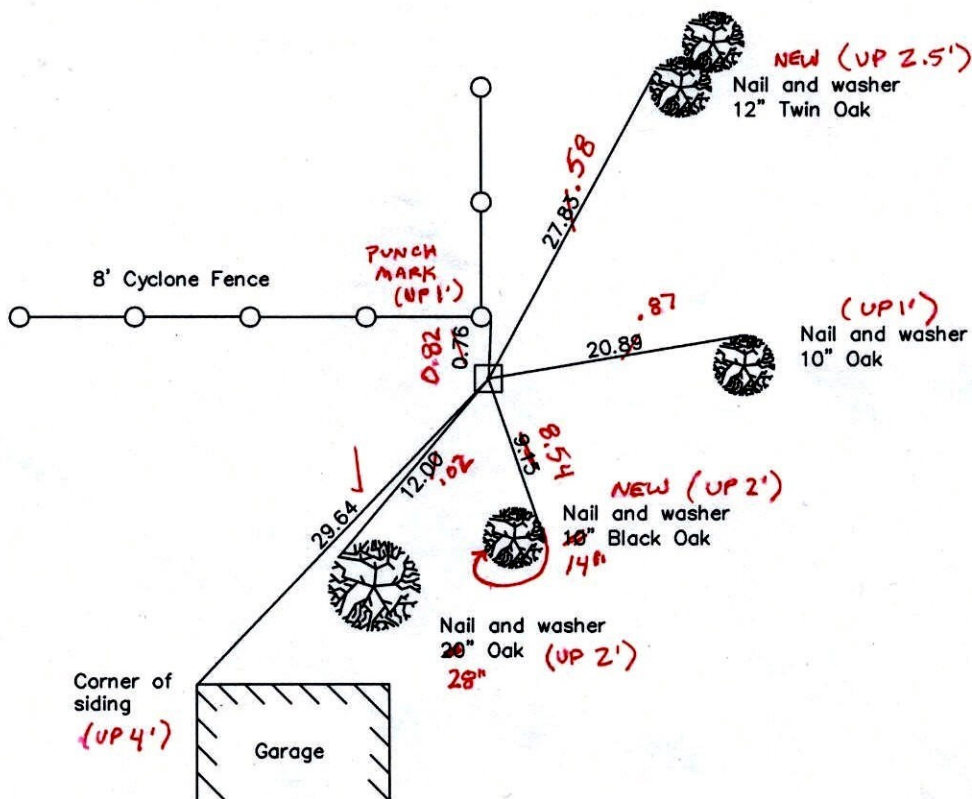 NEW (UP 2.5')
Nail and washer
12" Twin Oak
.58
27.83
PUNCH
MARK
(UP 1')
8' Cyclone Fence
0.82
0.76
.87
20.89
(UP 1')
Nail and washer
10" Oak
9.15
8.54
NEW (UP 2')
Nail and washer
10" Black Oak
14"
29.64
12.00
.02
Nail and washer
20" Oak (UP 2')
28"
Corner of
siding
(UP 4')
Garage